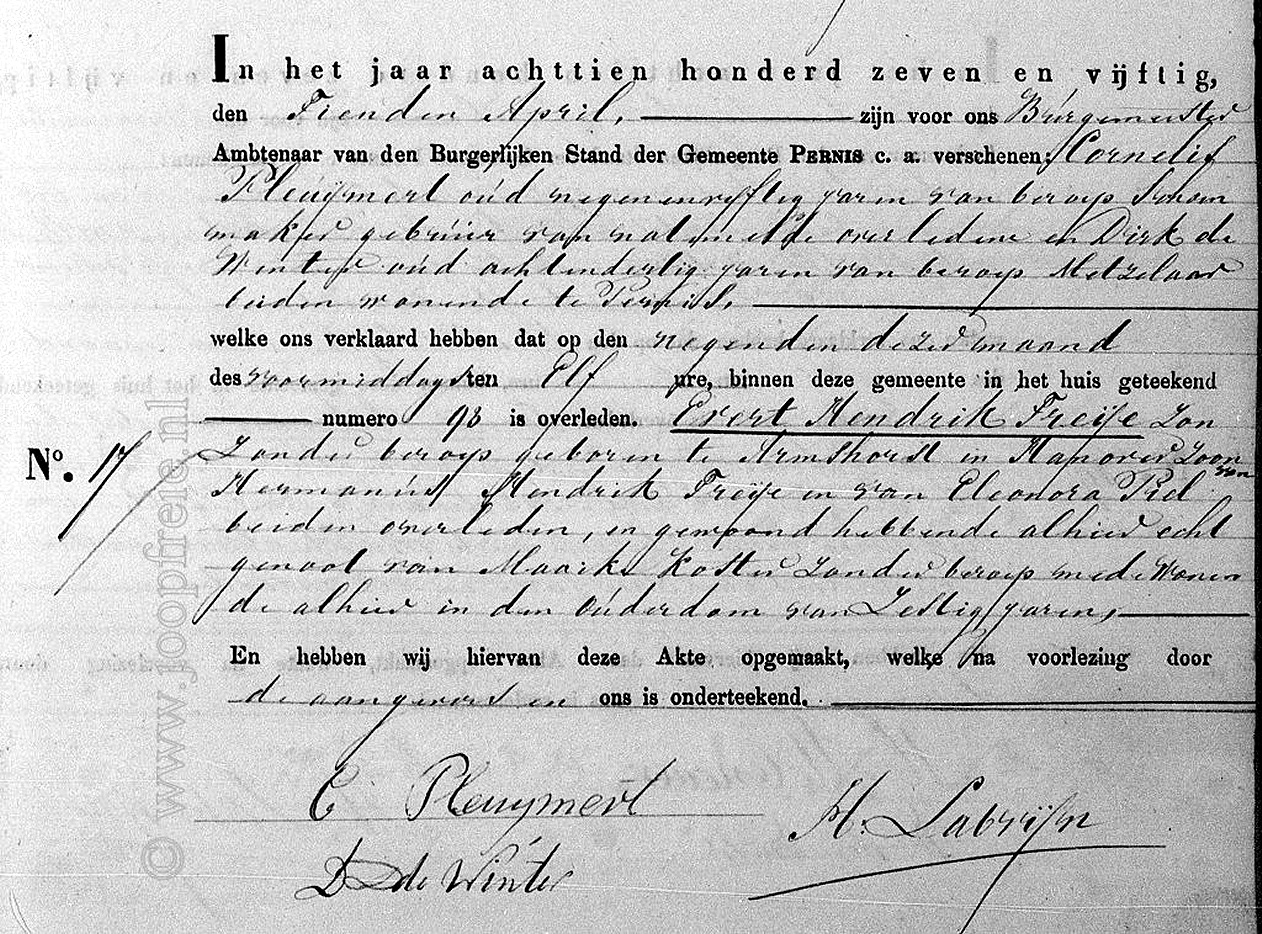 In het jaar achttien honderd zeven en vijftig,
den Tienden April, zijn voor ons Burgemeester
Ambtenaar van den Burgerlijken Stand der Gemeente PERNIS c. a. verschenen; Cornelis
Pleuijmert oud negenenvijftig jaren van beroep Schoen
maker gebuur van natemelde overledene en Dirk de
Winter oud achtendertig jaren van beroep Metzelaar
beiden wonende te Pernis,
welke ons verklaard hebben dat op den negenden dezer maand
des voormiddags ten Elf ure, binnen deze gemeente in het huis geteekend
numero 98 is overleden. Evert Hendrik Freije Zon
No. 17
Zonder beroep geboren te Armshorst in Hanover Zoon van
Hermanus Hendrik Freije en van Eleonora Piel
beiden overleden, en gewoond hebbende alhier echt
genoot van Maarke Koster Zonder beroep mede Wonen
de alhier in den Ouderdom van Zestig jaren,
En hebben wij hiervan deze Akte opgemaakt, welke na voorlezing door
de aangevers en ons is onderteekend.
C Pleuymert
H. Labrijn
D de Winter
© www.joopfreie.nl